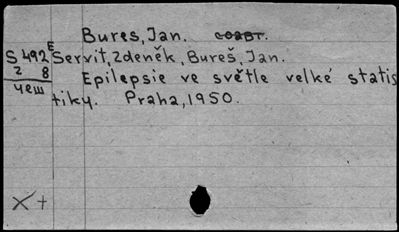 Bures, Jan. соавт.
S 492 E Servít, Zdeněk, Bureš, Jan.
2 8 Epilepsie ve světle velké statis
чеш tiky. Praha, 1950.
X +